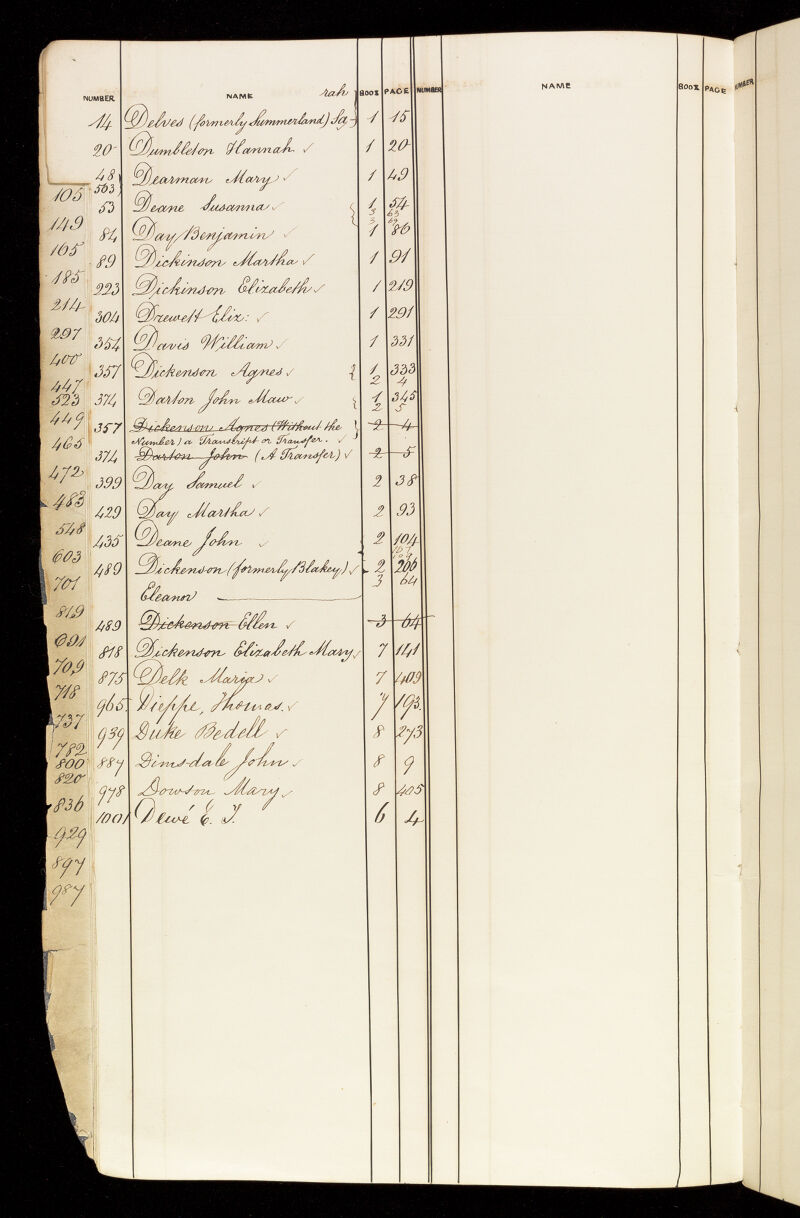 NUMBER NAME BOOK PAGE NUMBER NAME BOOK PAGE NUMBER
rah
14 Delves (formerly Summerland) Sa- 1 15
20 Dumbleton Hannah ✓ 1 20
48 Dearman Mary ✓ 1 49
563
105
53 Deane Susanna ✓ 1 54
3 63
149
3 69
84 Day Benjamin ✓ 1 86
165
89 Dickinson Martha ✓ 1 91
185
223 Dickinson Elizabeth ✓ 1 219
214
304 Drewett Eliz: ✓ 1 291
297
354 Davis William ✓ 1 331
400
357 Dickenson Agnes ✓ 1 333
447 2 4
523 374 Darton John Maw ✓ 1 345
2 5
449
357 Dickenson Agnes (Without the 2 4
465 Number) a Transcript or Transfer. ✓
374 Darton John (A Transfer) ✓ 2 5
472
399 Day Samuel ✓ 2 38
483
429 Day Martha ✓ 2 93
548
435 Deane John ✓ 2 104
107
603 109
489 Dickenson (formerly Blakey) ✓ 2 206
701 3 64
Eleanor
819
489 Dickenson Ellen ✓ 3 64
691
818 Dickenson Elizabeth Mary ✓ 7 141
709
875 Delk Maria ✓ 7 409
718
965 Dieppe, Thomas. ✓ 7 193
737
939 Duke Bedell ✓ 8 273
782
800 887 Dimsdale John ✓ 8 9
820
978 Dowson Mary ✓ 8 405
836
1001 Dewé E. T. 6 4
929
897
987